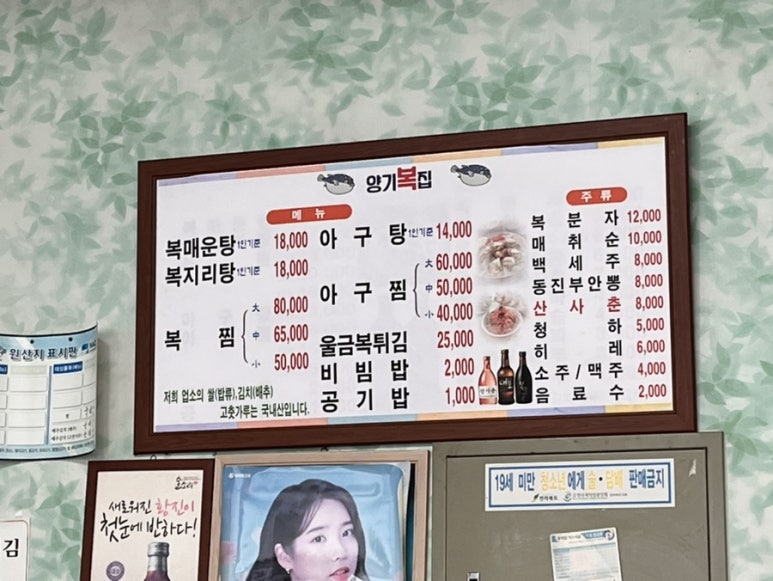 양기복집
메뉴
복매운탕 1인기준 18,000
복지리탕 1인기준 18,000
복 찜
大 80,000
中 65,000
小 50,000
저희 업소의 쌀(밥류),김치(배추)
고춧가루는 국내산입니다.
아 구 탕 1인기준 14,000
아 구 찜
大 60,000
中 50,000
小 40,000
울금복튀김 25,000
비 빔 밥 2,000
공 기 밥 1,000
주 류
복 분 자 12,000
매 취 순 10,000
백 세 주 8,000
동진부안뽕 8,000
산 사 춘 8,000
청 하 5,000
히 레 6,000
소 주 / 맥 주 4,000
음 료 수 2,000
원산지표시판
김
새로워진 황진이
첫눈에 반하다!
19세 미만 청소년에게 술·담배 판매금지